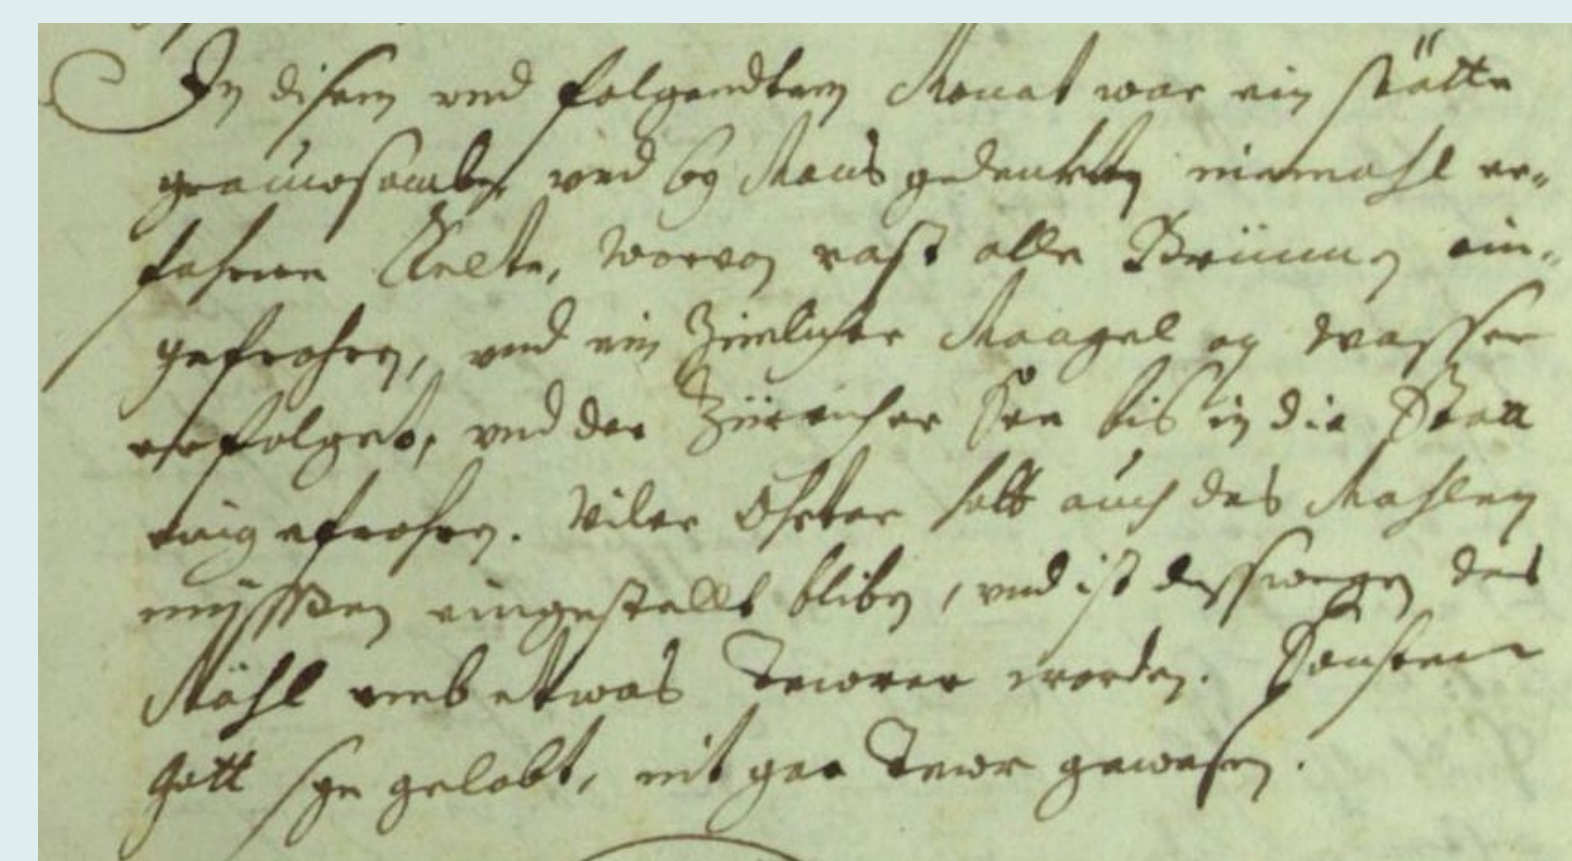 In disem vnd folgendten Monat war ein stätte
grauwsambe, vnd by Mans gedenkhen niemahl er-
fahrne Kelte, worvon vast alle Brünnen ein-
gefrohren, vnd ein Zimlicher Mangel an wasser
erfolget, vnd der Züricher See bis in die Statt
eingefrohren. Viler Ohrten hatt auch das Mahlen
müssen eingestellt bliben, vnd ist desswegen das
Mähl umb etwas Tewrer worden. Sonsten
Gott sye gelobt, nit gar Tewr gewesen.